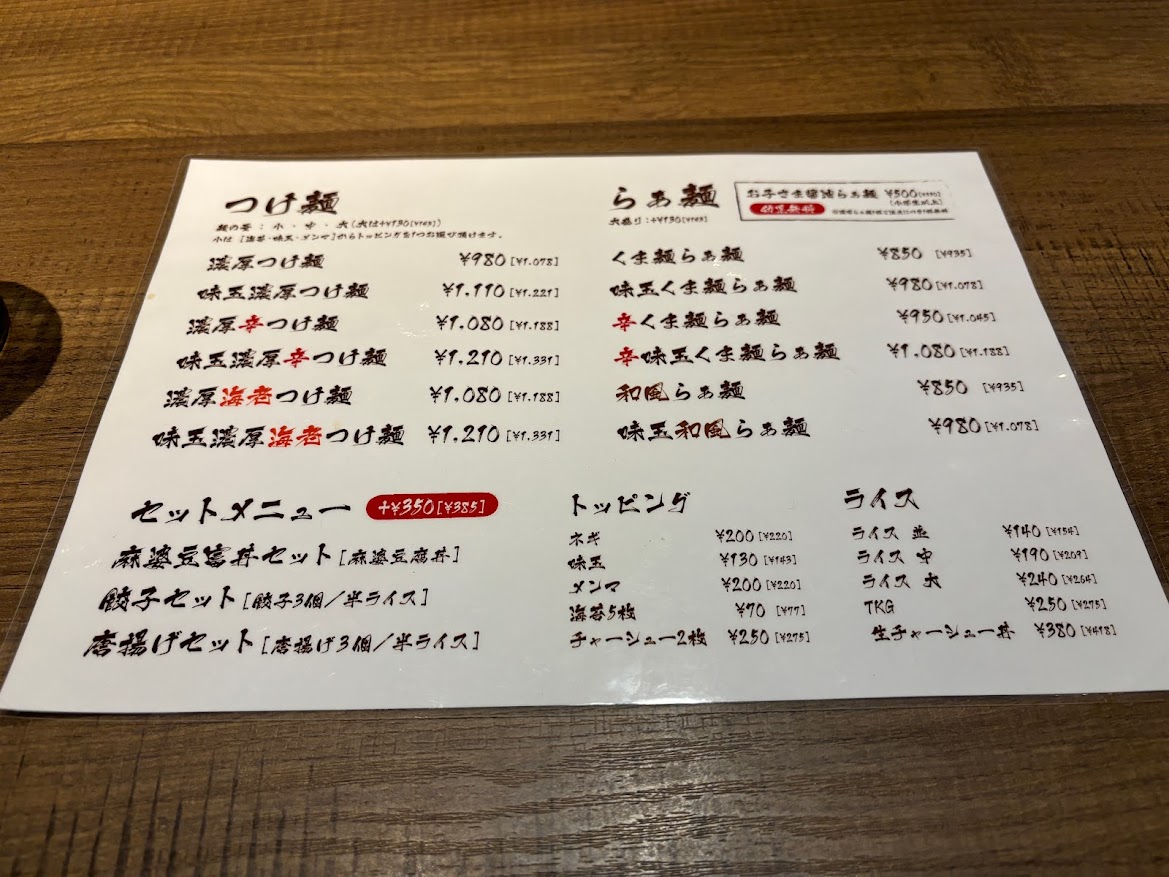 つけ麺
麺の量：小・中・大(大は+¥150[¥165])
小は[海苔・味玉・メンマ]からトッピングを1つお選び頂けます。
濃厚つけ麺 ¥980[¥1.078]
味玉濃厚つけ麺 ¥1.110[¥1.221]
濃厚辛つけ麺 ¥1.080[¥1.188]
味玉濃厚辛つけ麺 ¥1.210[¥1.331]
濃厚海老つけ麺 ¥1.080[¥1.188]
味玉濃厚海老つけ麺 ¥1.210[¥1.331]
らぁ麺
大盛り：+¥150[¥165]
お子さま醤油らぁ麺 ¥500[¥550]
(小学生以上)
幼児無料
くま麺らぁ麺 ¥850 [¥935]
味玉くま麺らぁ麺 ¥980[¥1.078]
辛くま麺らぁ麺 ¥950[¥1.045]
辛味玉くま麺らぁ麺 ¥1.080[¥1.188]
和風らぁ麺 ¥850 [¥935]
味玉和風らぁ麺 ¥980[¥1.078]
セットメニュー +¥350[¥385]
麻婆豆富丼セット[麻婆豆腐丼]
餃子セット[餃子3個/半ライス]
唐揚げセット[唐揚げ3個/半ライス]
トッピング
ネギ ¥200[¥220]
味玉 ¥130[¥143]
メンマ ¥200[¥220]
海苔5枚 ¥70 [¥77]
チャーシュー2枚 ¥250[¥275]
ライス
ライス 並 ¥140[¥154]
ライス 中 ¥190[¥209]
ライス 大 ¥240[¥264]
TKG ¥250[¥275]
生チャーシュー丼 ¥380[¥418]